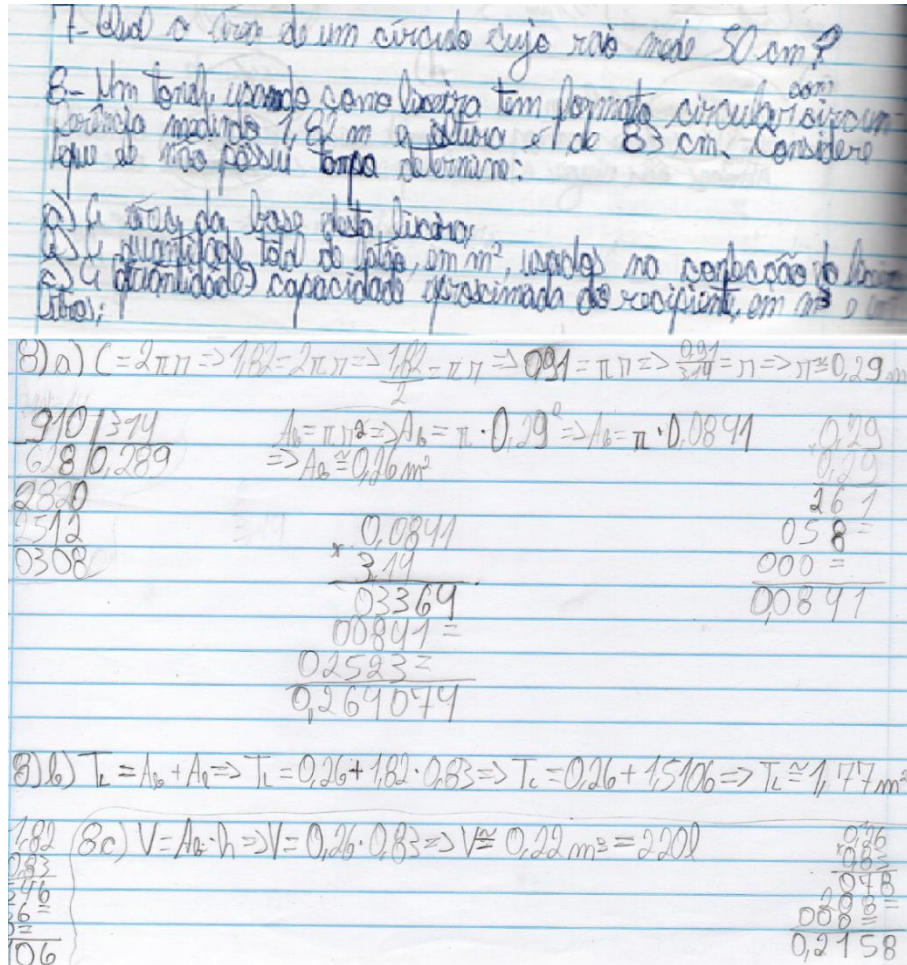 7- Qual a área de um círculo cujo raio mede 50 cm?
8- Um tonel, usando como lixeira tem formato circular com circun-
ferência medindo 1,82 m e altura é de 83 cm. Considere
que ele não possui tampa determine:
a) A área da base desta lixeira;
b) A quantidade total de latão, em m², usados na confecção do
c) A (quantidade) capacidade aproximada do recipiente, em m³ e em
litros;
8)a) C = 2πr => 1,82 = 2πr => 1,82/2 = πr => 0,91 = πr => 0,91/3,14 = r => r ≅ 0,29 m
910 | 314
628 | 0,289
2820
2512
0308
Ab = πr² => Ab = π · 0,29² => Ab = π · 0,0841
=> Ab ≅ 0,26 m²
0,0841
× 3,14
03364
00841 =
02523 =
0,264074
0,29
0,29
261
058 =
000 =
0,0841
8)b) TL = Ab + Al => TL = 0,26 + 1,82 · 0,83 => TL = 0,26 + 1,5106 => TL ≅ 1,77 m²
1,82
0,83
546
6 =
=
106
8c) V = Ab · h => V = 0,26 · 0,83 => V ≅ 0,22 m³ = 220l
0,26
× 0,83
078
208 =
000 =
0,2158